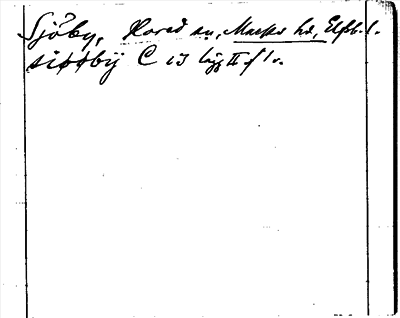 Sjöby, Horred sn, Marks hd, Elfsb. l.
siøøby C 13 lägg II f 1 v.